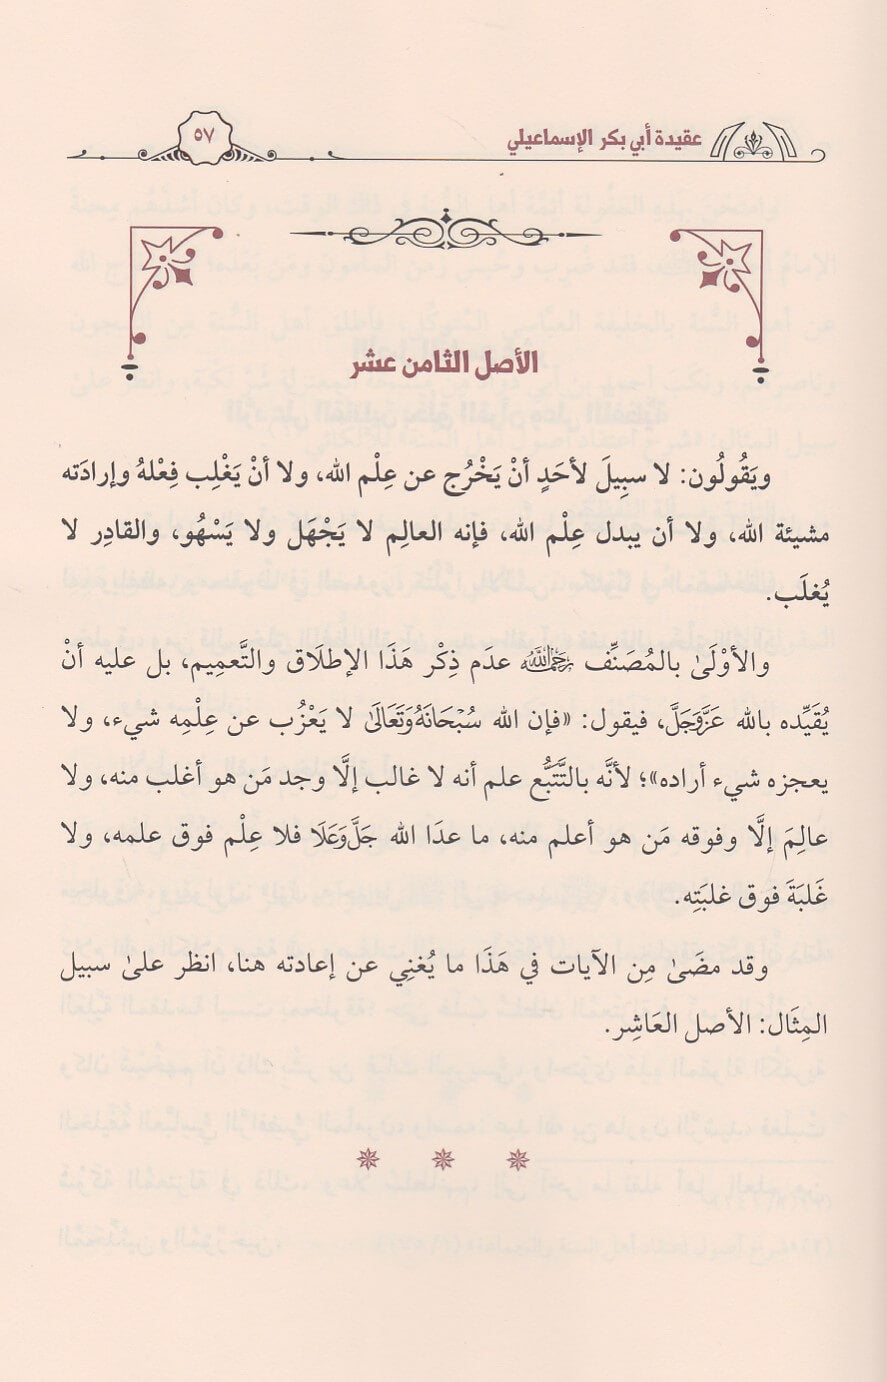 عقيدة أبي بكر الإسماعيلي
٥٧
الأصل الثامن عشر
ويَقُولُون: لا سبِيلَ لأحَدٍ أنْ يَخْرُج عن عِلْم الله، ولا أنْ يَغْلِب فِعْلهُ وإرادَته
مشيئة الله، ولا أن يبدل عِلْم الله، فإنه العالِم لا يَجْهَل ولا يَسْهُو، والقادِر لا
يُغلَب.
والأوْلَىٰ بالمُصَنِّف رَحِمَهُ اللَّهُ عدَم ذِكْر هَذَا الإطلَاق والتَّعمِيم، بل عليه أنْ
يُقَيِّده بالله عَزَّوَجَلَّ، فيقول: «فإن الله سُبْحَانَهُ وَتَعَالَىٰ لا يَعْزُب عن عِلْمِه شيء، ولا
يعجزه شيء أراده»؛ لأنَّه بالتَّتَبُّع علم أنه لا غالب إلَّا وجد مَن هو أغلب منه، ولا
عالِمَ إلَّا وفوقه مَن هو أعلم منه، ما عدَا الله جَلَّ وَعَلَا فلا عِلْم فوق علمه، ولا
غَلبَةَ فوق غلبَتِه.
وقد مضَىٰ مِن الآيات في هَذَا ما يُغنِي عن إعادته هنا، انظر علىٰ سبيل
المِثَال: الأصل العَاشِر.